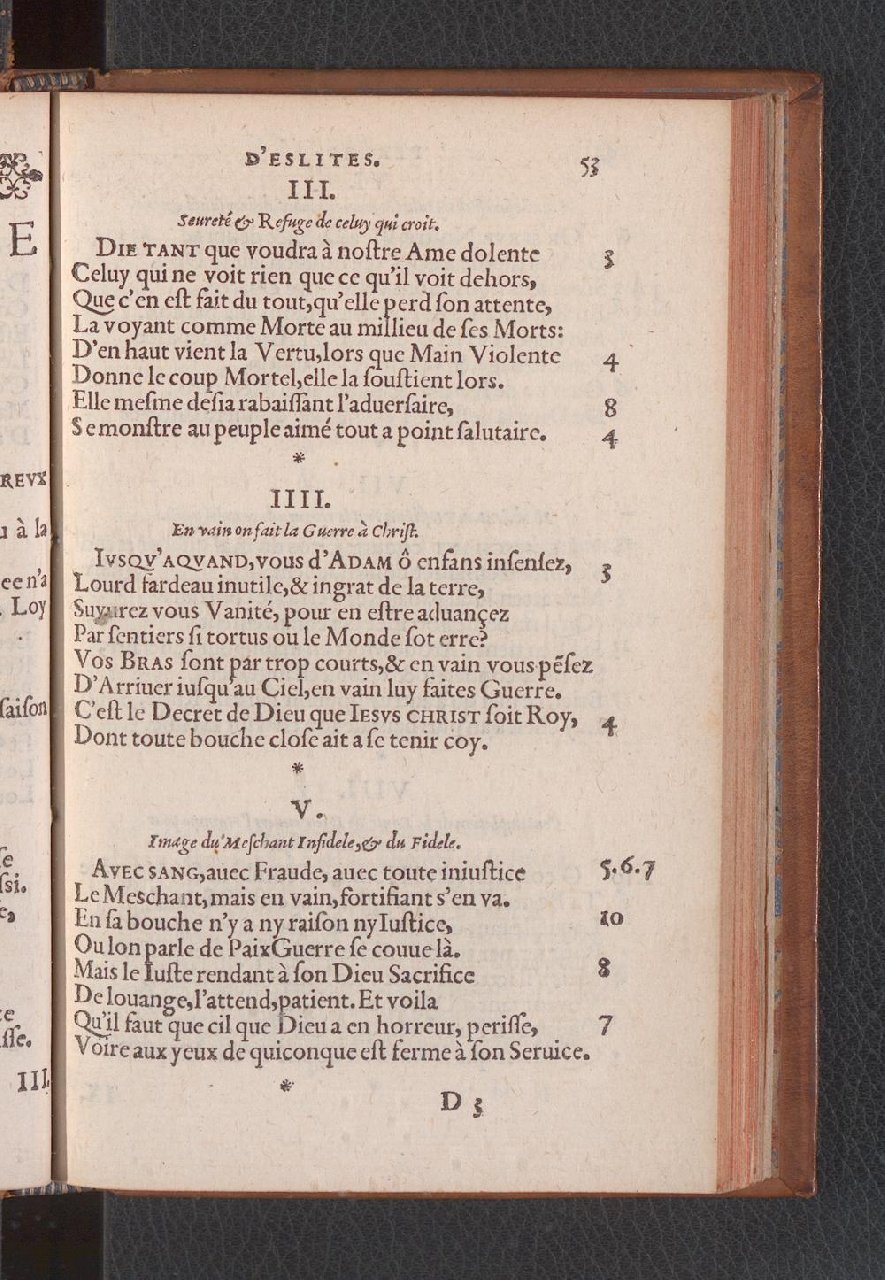 D'ESLITES. 53
III.
Seureté & Refuge de celuy qui croit.
DIE TANT que voudra à noſtre Ame dolente 3
Celuy qui ne voit rien que ce qu'il voit dehors,
Que c'en eſt fait du tout, qu'elle perd ſon attente,
La voyant comme Morte au millieu de ſes Morts:
D'en haut vient la Vertu, lors que Main Violente 4
Donne le coup Mortel, elle la ſouſtient lors.
Elle meſme deſia rabaiſſant l'aduerſaire, 8
Se monſtre au peuple aimé tout a point ſalutaire. 4
*
IIII.
En vain on fait la Guerre à Chriſt.
IVSQV'AQVAND, vous d'ADAM ô enfans inſenſez, 3
Lourd fardeau inutile, & ingrat de la terre,
Suyurez vous Vanité, pour en eſtre aduançez
Par ſentiers ſi tortus ou le Monde ſot erre?
Vos BRAS ſont par trop courts, & en vain vous pẽſez
D'Arriuer iuſqu'au Ciel, en vain luy faites Guerre.
C'eſt le Decret de Dieu que IESVS CHRIST ſoit Roy, 4
Dont toute bouche cloſe ait a ſe tenir coy.
*
V.
Image du Meſchant Infidele, & du Fidele.
AVEC SANG, auec Fraude, auec toute iniuſtice 5.6.7
Le Meschant, mais en vain, fortifiant s'en va.
En ſa bouche n'y a ny raiſon ny Iuſtice, 10
Ou lon parle de Paix Guerre ſe couue là.
Mais le Iuſte rendant à ſon Dieu Sacrifice 8
De louange, l'attend, patient. Et voila
Qu'il faut que cil que Dieu a en horreur, periſſe, 7
Voire aux yeux de quiconque eſt ferme à ſon Seruice.
*
D 3
E
REVX
à la
ee n'a
Loy
ſaiſon
III